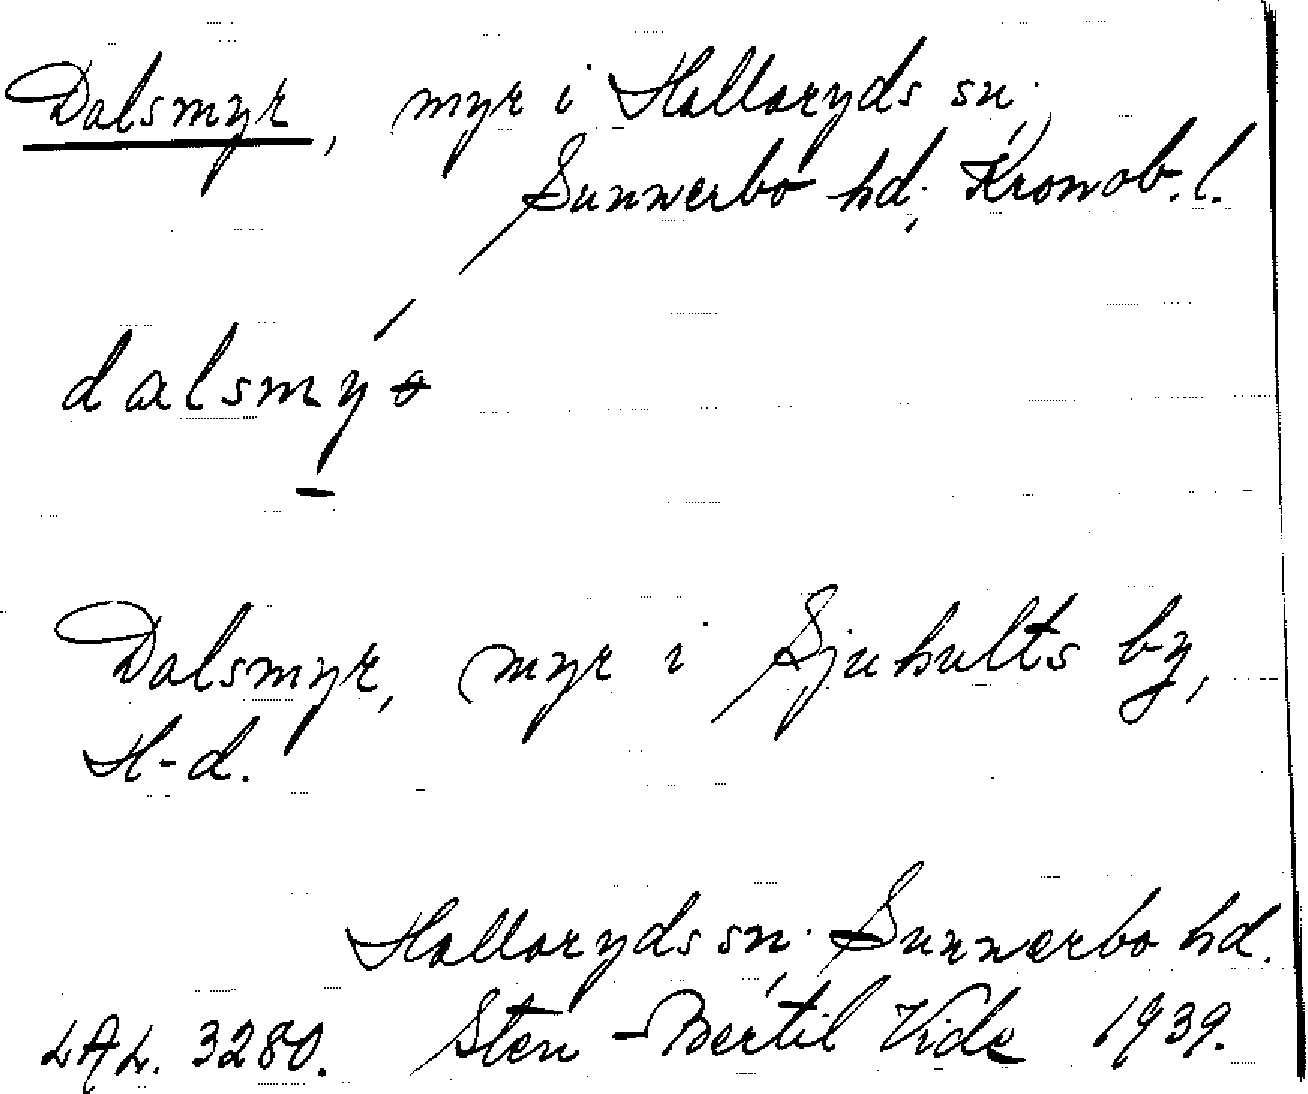 Dalsmyr, myr i Hallaryds sn.,
Sunnerbo hd., Kronob. l.
dalsmýɷ
Dalsmyr, myr i Sjuhults by,
H-d.
Hallaryds sn., Sunnerbo hd.
LAL. 3280. Sten-Bertil Vide 1939.